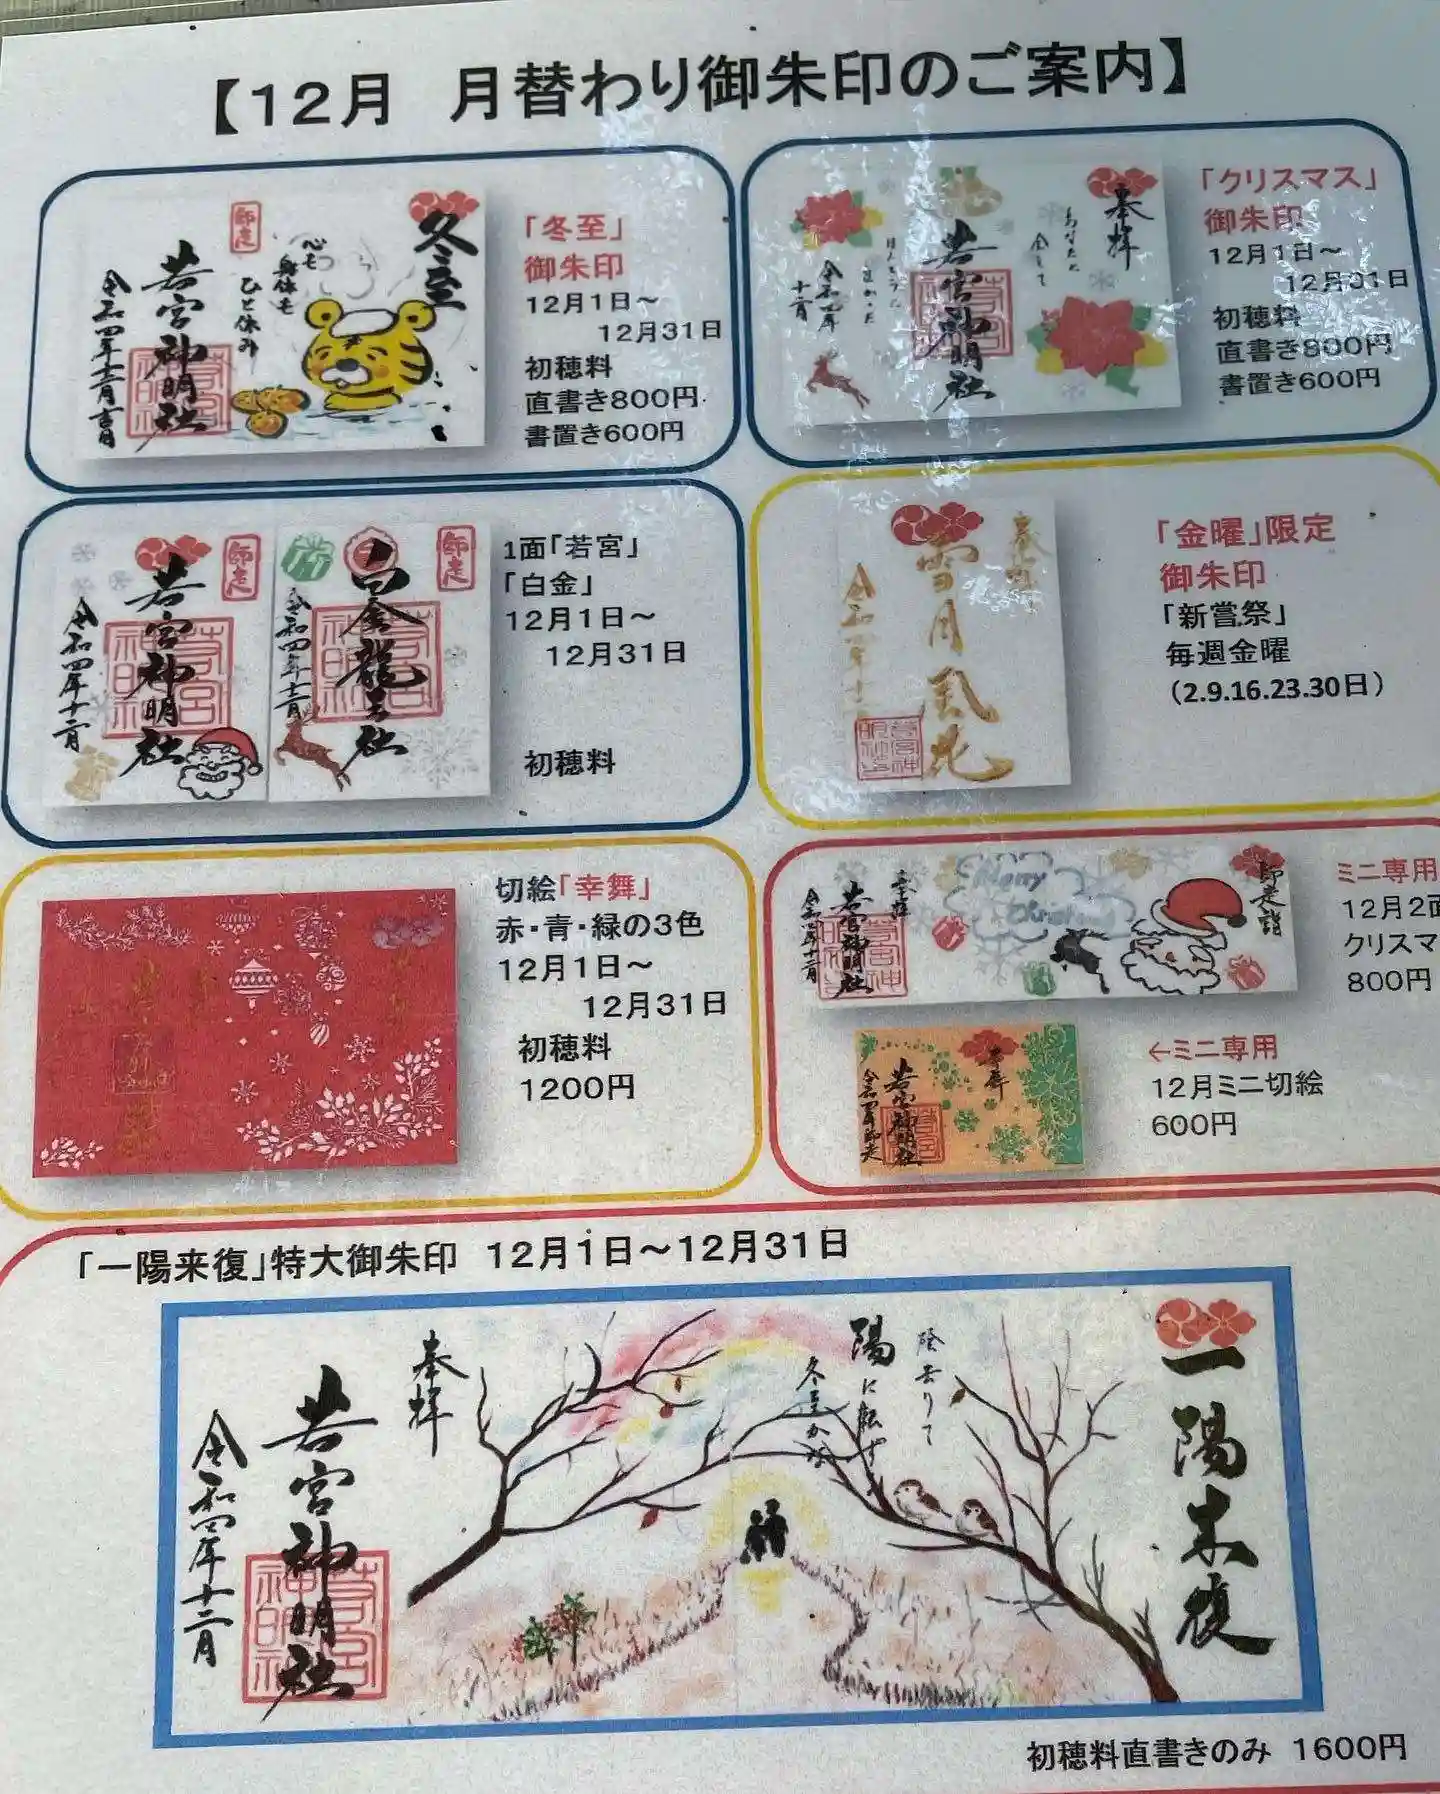 【12月　月替わり御朱印のご案内】
冬至
師走
心も
身体も
ひと休み
若宮神明社
令和四年十二月吉日
「冬至」
御朱印
12月1日～
12月31日
初穂料
直書き800円
書置き600円
奉拝
若宮神明社
令和四年
十二月
「クリスマス」
御朱印
12月1日～
12月31日
初穂料
直書き800円
書置き600円
師走
若宮神明社
令和四年十二月
師走
白金龍王社
令和四年十二月
1面「若宮」
「白金」
12月1日～
12月31日
初穂料
奉拝
雪月風花
令和四年十二
「金曜」限定
御朱印
「新嘗祭」
毎週金曜
（2.9.16.23.30日）
切絵「幸舞」
赤・青・緑の3色
12月1日～
12月31日
初穂料
1200円
師走詣
Merry
Christmas
奉拝
若宮神明社
令和四年十二月
ミニ専用
12月2面
クリスマ
800円
奉拝
若宮神明社
令和四年師走
←ミニ専用
12月ミニ切絵
600円
「一陽来復」特大御朱印　12月1日～12月31日
一陽来復
陰極りて
陽に転ず
冬至かな
奉拝
若宮神明社
令和四年十二月
初穂料直書きのみ　1600円